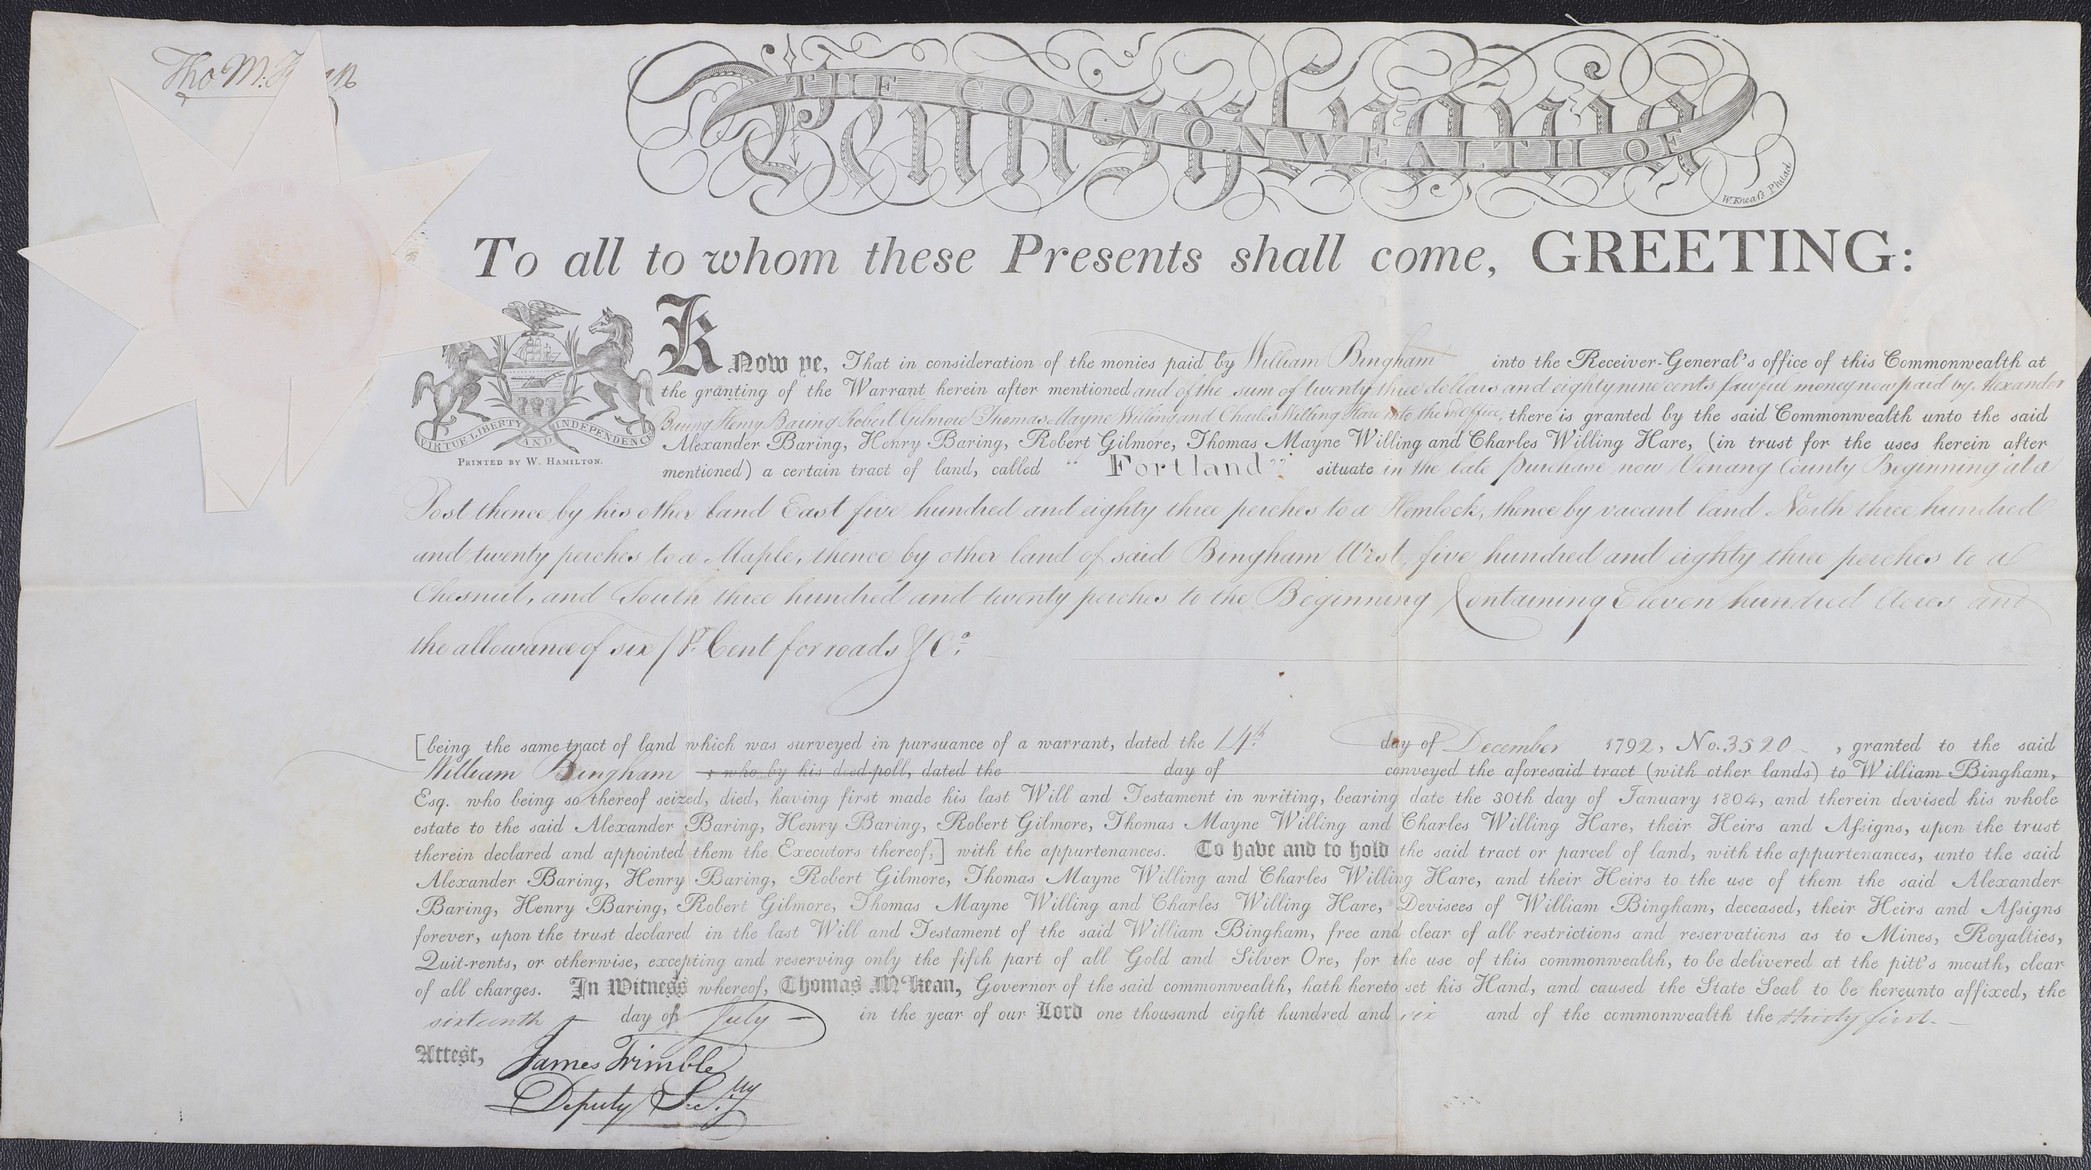 Tho M:
THE COMMONWEALTH OF
Pennsylvania
W. Kneaſs Philad.
To all to whom these Presents shall come, GREETING:
VIRTUE LIBERTY AND INDEPENDENCE
PRINTED BY W. HAMILTON.
Know ye, That in consideration of the monies paid by William Bingham into the Receiver-General's office of this Commonwealth at
the granting of the Warrant herein after mentioned and of the sum of twenty three dollars and eighty nine cents lawful money now paid by Alexander
Baring Henry Baring Robert Gilmore Thomas Mayne Willing and Charles Willing Hare into the sd Office, there is granted by the said Commonwealth unto the said
Alexander Baring, Henry Baring, Robert Gilmore, Thomas Mayne Willing and Charles Willing Hare, (in trust for the uses herein after
mentioned) a certain tract of land, called "Fortland" situate in the late purchase now Venang County Beginning at a
Post thence by his other land East five hundred and eighty three perches to a Hemlock, thence by vacant land North three hundred
and twenty perches to a Maple, thence by other land of said Bingham West, five hundred and eighty three perches to a
Chesnut, and South three hundred and twenty perches to the Beginning Containing Eleven hundred Acres and
the allowance of six pr Cent for roads &Ca.
[being the same tract of land which was surveyed in pursuance of a warrant, dated the 14th day of December 1792, No. 3520 , granted to the said
William Bingham , who by his died poll, dated the day of conveyed the aforesaid tract (with other lands) to William Bingham,
Esq. who being so thereof seized, died, having first made his last Will and Testament in writing, bearing date the 30th day of January 1804, and therein devised his whole
estate to the said Alexander Baring, Henry Baring, Robert Gilmore, Thomas Mayne Willing and Charles Willing Hare, their Heirs and Aſsigns, upon the trust
therein declared and appointed them the Executors thereof,] with the appurtenances. To have and to hold the said tract or parcel of land, with the appurtenances, unto the said
Alexander Baring, Henry Baring, Robert Gilmore, Thomas Mayne Willing and Charles Willing Hare, and their Heirs to the use of them the said Alexander
Baring, Henry Baring, Robert Gilmore, Thomas Mayne Willing and Charles Willing Hare, Devisees of William Bingham, deceased, their Heirs and Aſsigns
forever, upon the trust declared in the last Will and Testament of the said William Bingham, free and clear of all restrictions and reservations as to Mines, Royalties,
Quit-rents, or otherwise, excepting and reserving only the fifth part of all Gold and Silver Ore, for the use of this commonwealth, to be delivered at the pitt's mouth, clear
of all charges. In Witness whereof, Thomas M'Kean, Governor of the said commonwealth, hath hereto set his Hand, and caused the State Seal to be hereunto affixed, the
sixteenth day of July in the year of our Lord one thousand eight hundred and six and of the commonwealth the thirty first.
Attest, James Trimble
Deputy Sec.ry